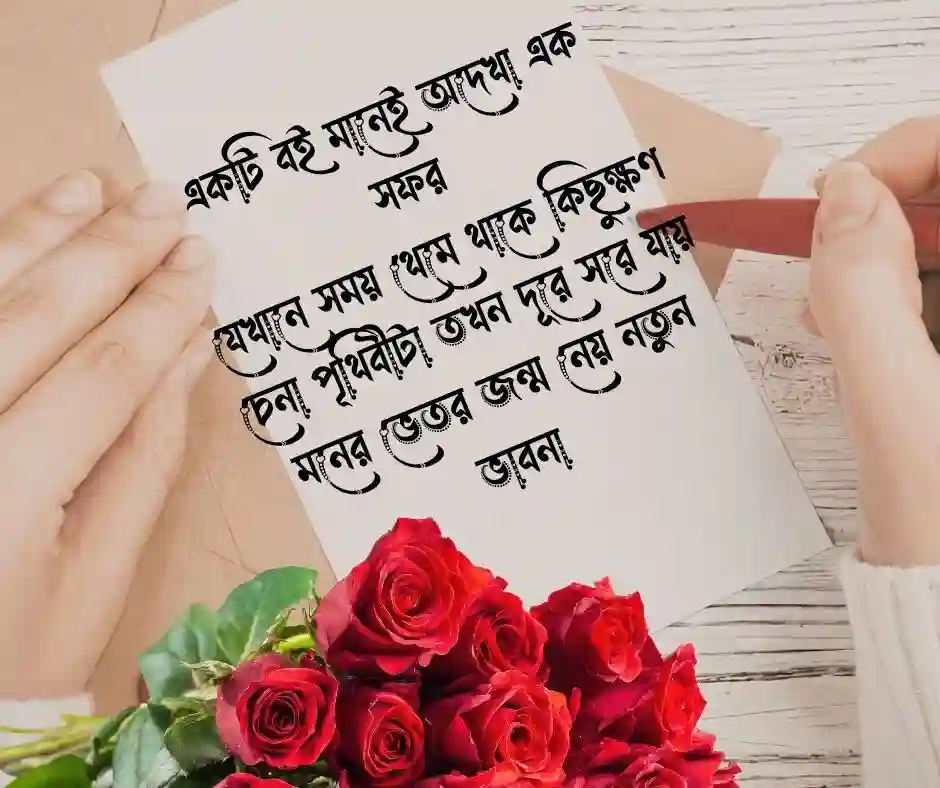 একটি বই মানেই অদেখা এক
সফর
যেখানে সময় থেমে থাকে কিছুক্ষণ
চেনা পৃথিবীটা তখন দূরে সরে যায়
মনের ভেতর জন্ম নেয় নতুন
ভাবনা